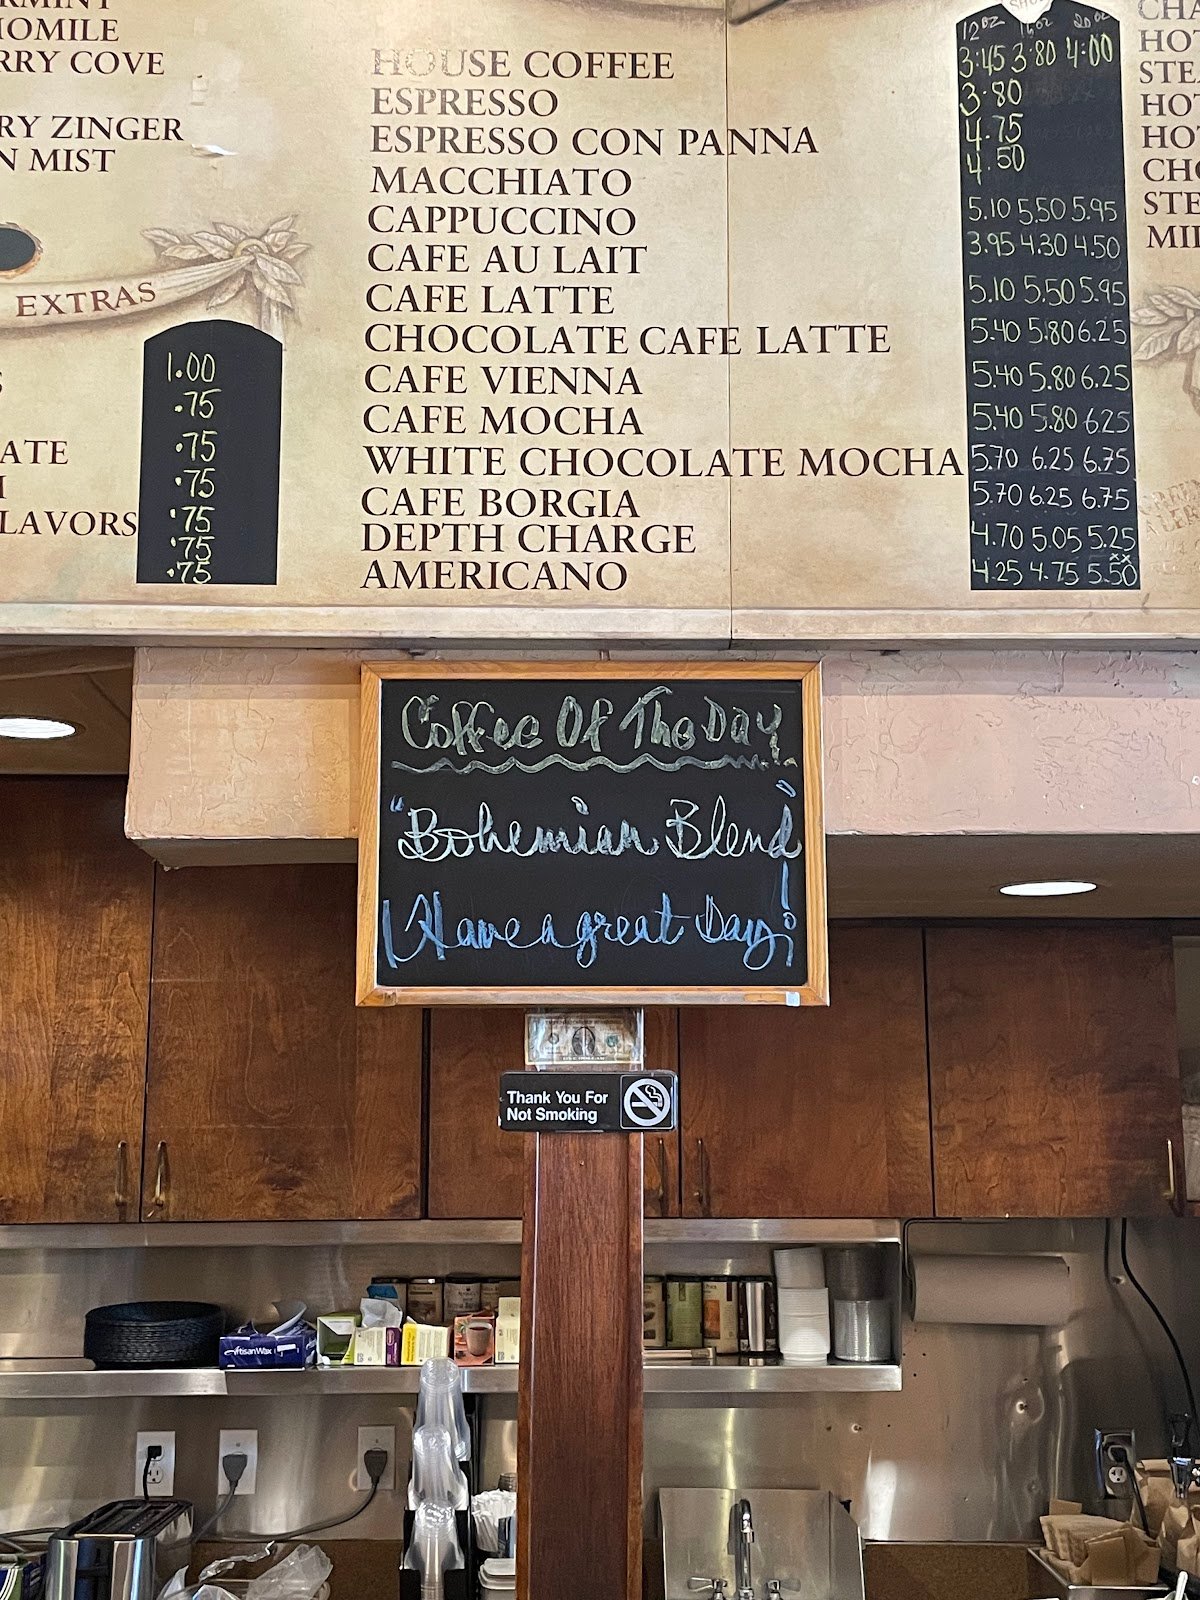 OMILE
RRY COVE
RY ZINGER
N MIST
EXTRAS
1.00
.75
.75
.75
.75
.75
.75
ATE
LAVORS
HOUSE COFFEE
ESPRESSO
ESPRESSO CON PANNA
MACCHIATO
CAPPUCCINO
CAFE AU LAIT
CAFE LATTE
CHOCOLATE CAFE LATTE
CAFE VIENNA
CAFE MOCHA
WHITE CHOCOLATE MOCHA
CAFE BORGIA
DEPTH CHARGE
AMERICANO
12oz 16oz 20oz
3.45 3.80 4.00
3.80
4.75
4.50
5.10 5.50 5.95
3.95 4.30 4.50
5.10 5.50 5.95
5.40 5.80 6.25
5.40 5.80 6.25
5.40 5.80 6.25
5.70 6.25 6.75
5.70 6.25 6.75
4.70 5.05 5.25
4.25 4.75 5.50
CHA
HOT
STEA
HOT
HOT
CHO
STE
MIL
Coffee Of The Day
"Bohemian Blend!
Have a great Day!
Thank You For
Not Smoking
ArtisanWax